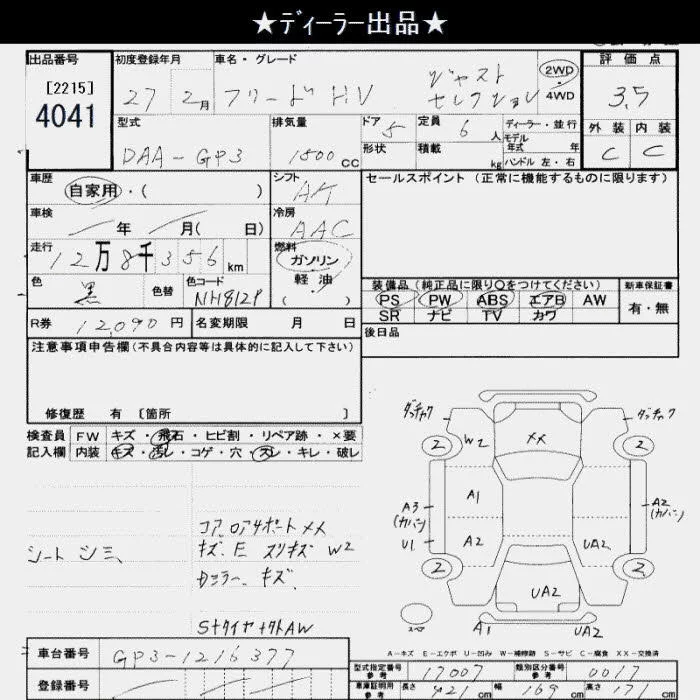 ★ディーラー出品★
出品番号 初度登録年月 車名・グレード 評価点
[2215]
4041
27 2月 フリードHV ジャスト セレクション 2WD 4WD 3.5
型式 排気量 ドア 5 定員 6人 ディーラー・並行 外装 内装
モデル年式 年
DAA-GP3 1500cc 形状 積載 kg ハンドル 左・右 C C
車歴 シフト セールスポイント (正常に機能するものに限ります)
自家用・( ) AT
車検 冷房
年 月( 日) AAC
走行 燃料
12万8千356km ガソリン
軽油
色 色替 色コード ( )
黒 NH812P
装備品(純正品に限り○をつけてください) 新車保証書
PS PW ABS エアB AW 有・無
SR ナビ TV カワ
R券 12,090円 名変期限 月 日 後日品
注意事項申告欄(不具合内容等は具体的に記入して下さい)
修復歴 有 〔箇所 〕
検査員 FW キズ・飛石・ヒビ割・リペア跡・×要
記入欄 内装 キズ・汚レ・コゲ・穴・スレ・キレ・破レ
シートシミ
コア、ロアサポートXX
キズ、E スリキズ W2
Dミラー、キズ
StタイヤナットAW
2 W2 XX 2
A3
(カバー)
U1
A1
A2
UA2
A2
(カバー)
2 UA2 2
A1 UA2
A-キズ E-エクボ U-凹ミ W-補修跡 S-サビ C-腐食 XX-交換済
車台番号 GP3-1216377
登録番号
型式指定番号 参考 17007 類別区分番号 参考 0017
車庫証明用 参考 長さ 421cm 幅 169cm 高さ 171cm